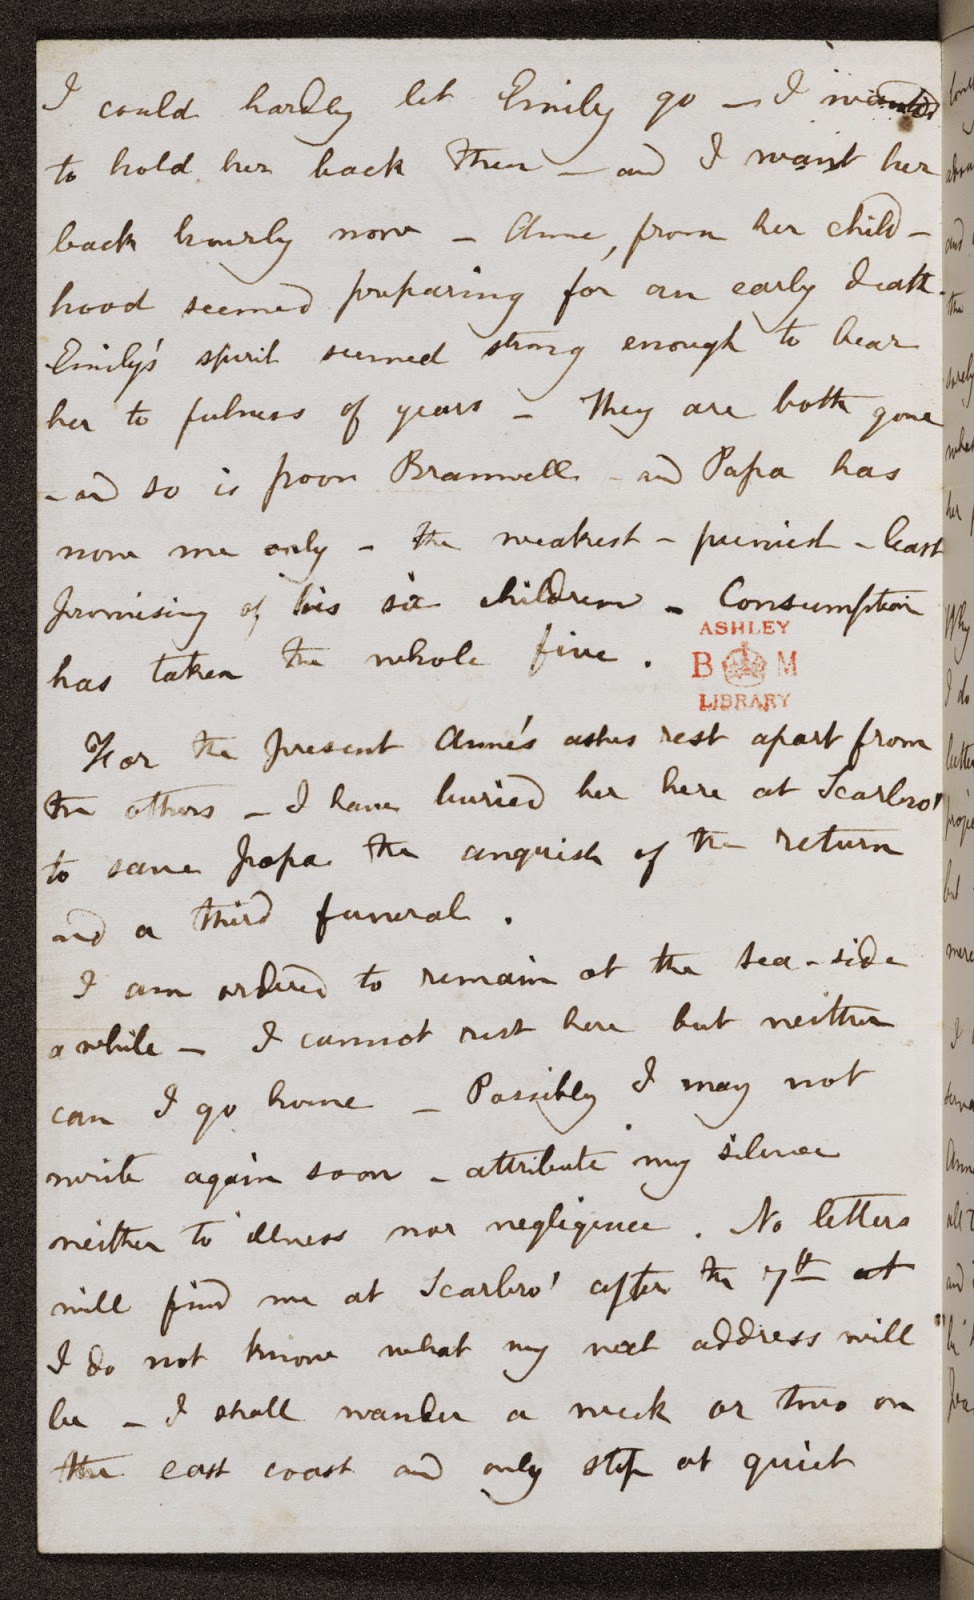 I could hardly let Emily go — I wanted
to hold her back then — and I want her
back hourly now — Anne, from her child-
hood seemed preparing for an early death.
Emily's spirit seemed strong enough to bear
her to fulness of years — They are both gone
- and so is poor Branwell - and Papa has
now me only - the weakest - puniest - least
promising of his six children - Consumption
has taken the whole five.
ASHLEY
B M
LIBRARY
For the present Anne's ashes rest apart from
the others - I have buried her here at Scarbro'
to save Papa the anguish of the return
and a third funeral.
I am ordered to remain at the sea-side
a while - I cannot rest here but neither
can I go home - Possibly I may not
write again soon - attribute my silence
neither to illness nor negligence. No letters
will find me at Scarbro' after the 7th
I do not know what my next address will
be - I shall wander a week or two on
the east coast and only stop at quiet